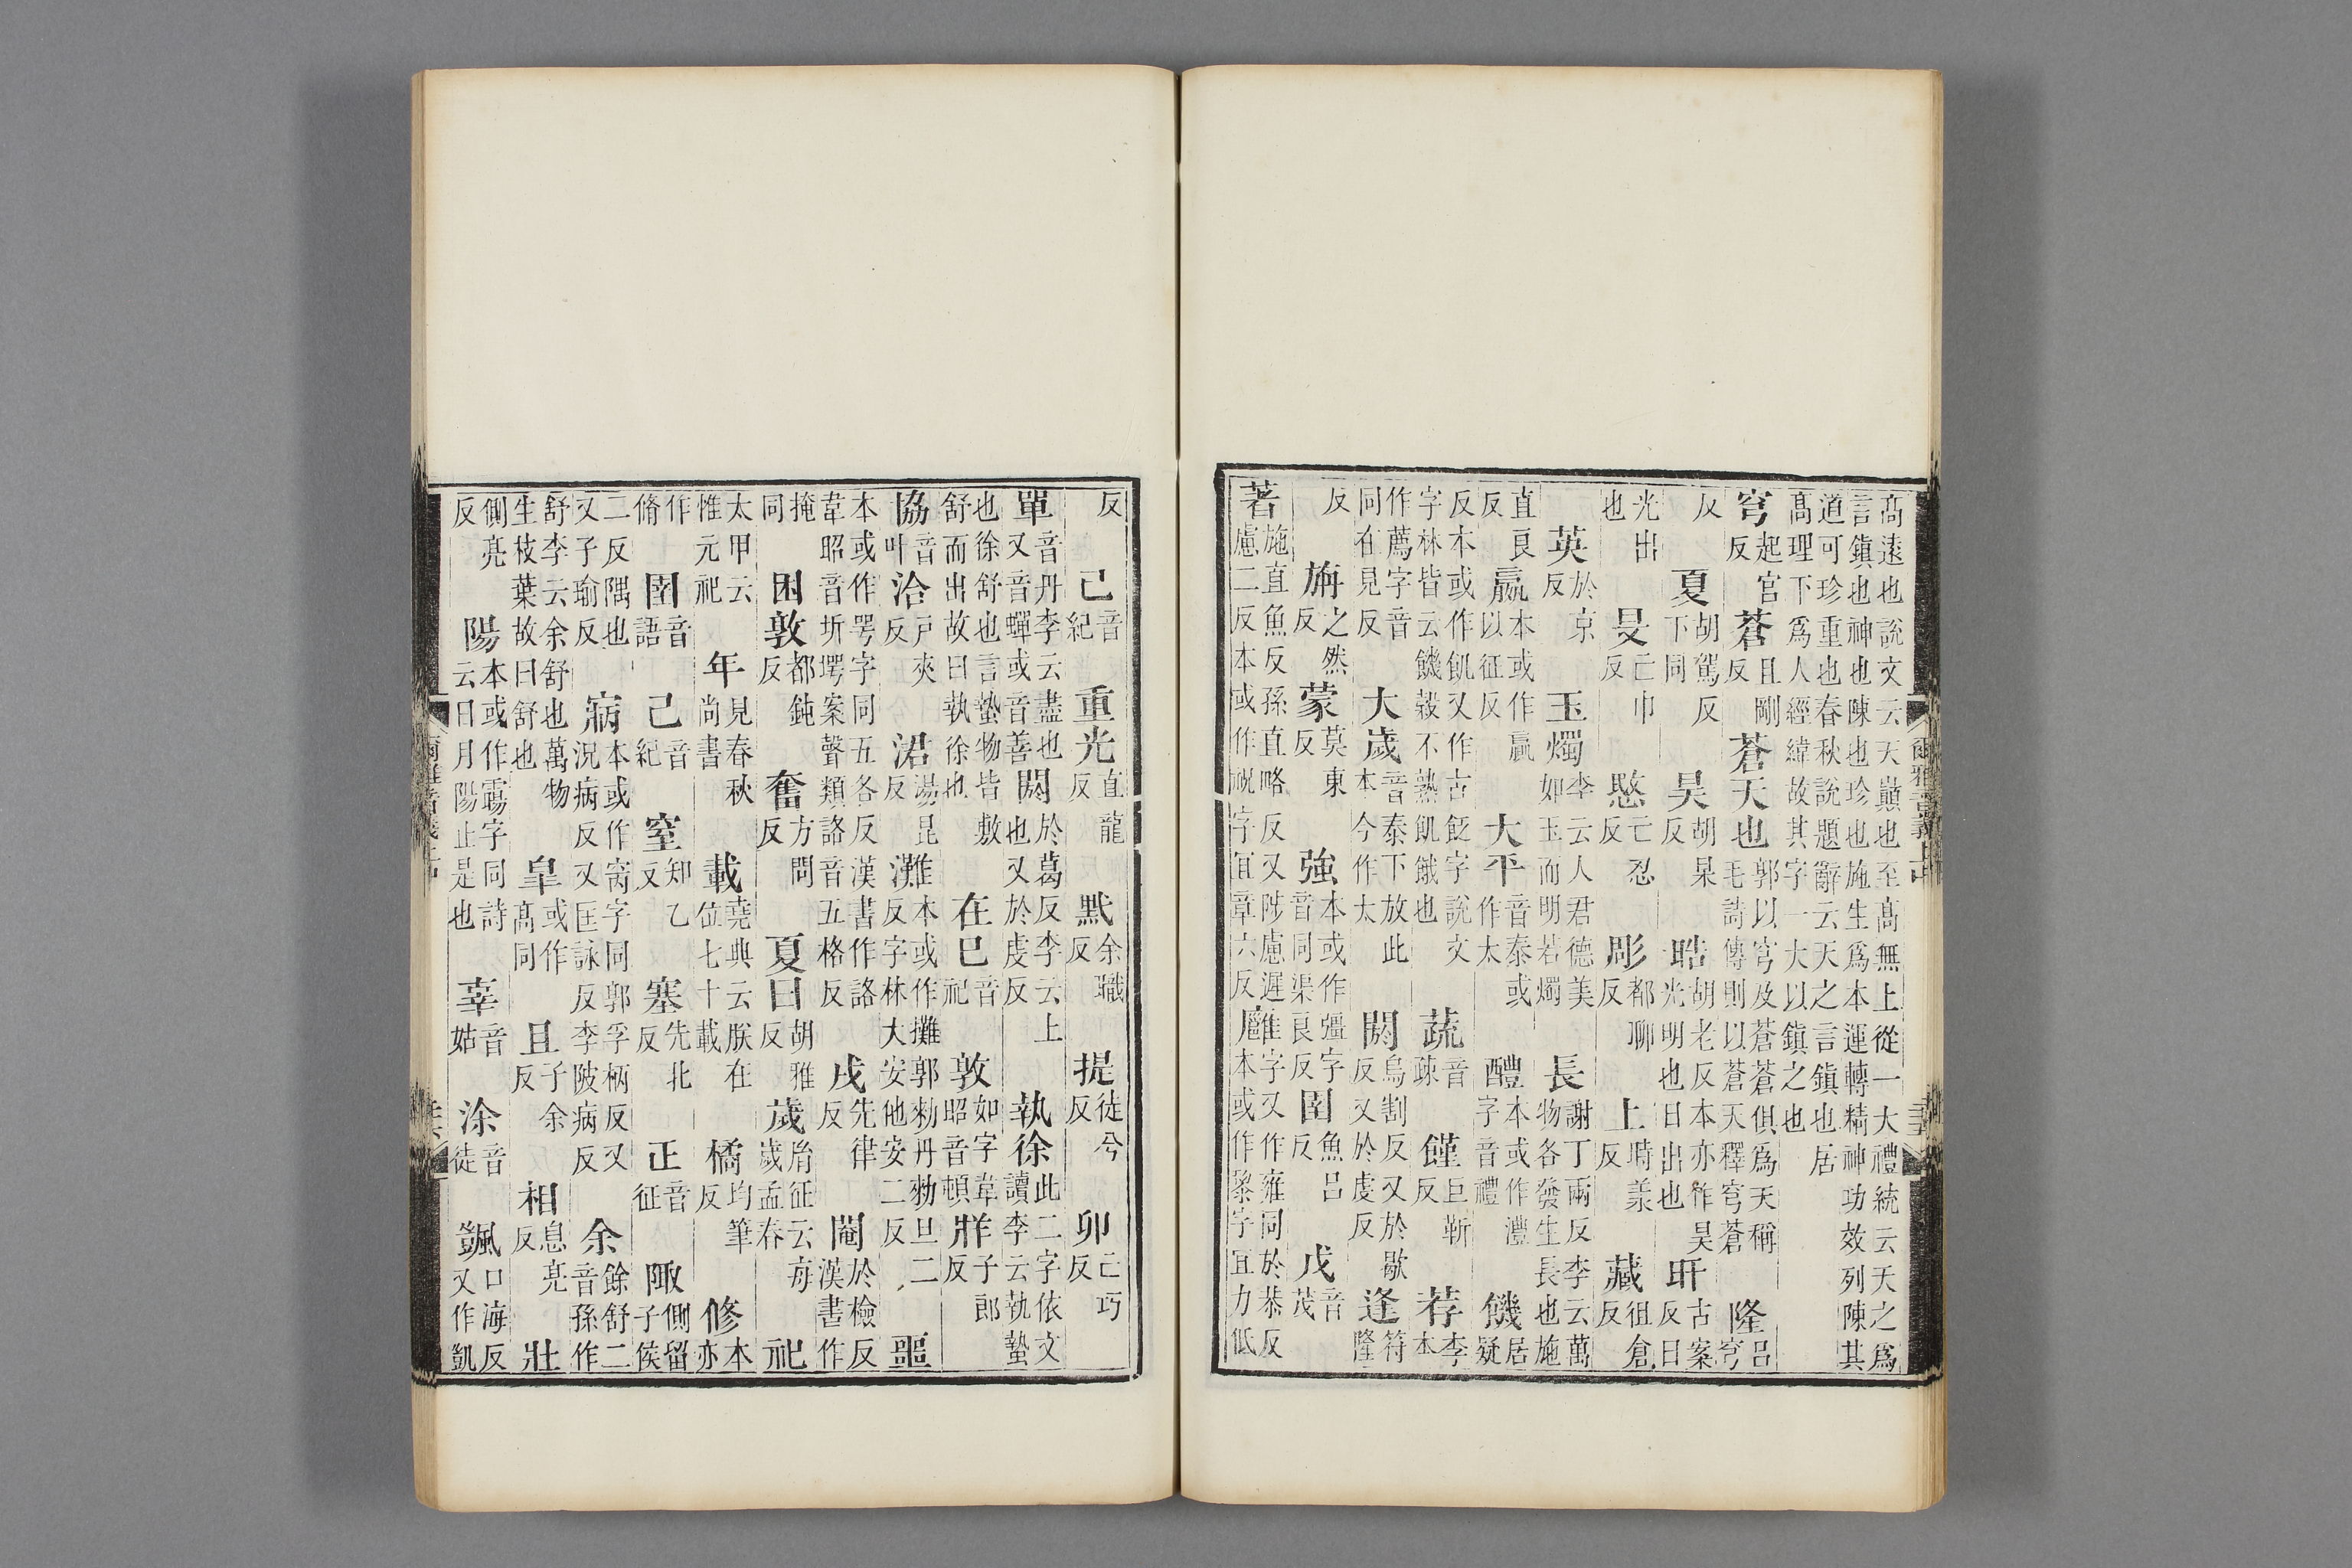 髙遠也說文云天巓也至髙無上從一大禮統云天之爲
言鎭也神也陳也珍也施生爲本運轉精神功效列陳其
道可珍重也春秋說題辭云天之言鎭也居
髙理下爲人經緯故其字一大以鎭之也
穹起宫反蒼且剛反蒼天也郭以穹及蒼蒼俱爲天稱毛詩傳則以蒼天釋穹蒼隆呂穹
反夏胡駕反下同昊胡杲反晧胡老反本亦作昊光明也日出也旰古案反日
光出也旻亡巾反愍亡忍反彫都聊反上時羕反藏徂倉反
英於京反玉燭李云人君德美如玉而明若燭長謝丁兩反李云萬物各發生長也施
直良反嬴本或作贏以征反大平音泰或作太醴本或作澧字音禮饑居疑
反本或作飢又作古飯字說文字林皆云饑穀不熟飢餓也蔬音疎饉巨靳反荐李本
作薦字音同在見反大歲音泰下放此本今作太閼烏割反又於歇反又於虔反逢符隆
反旃之然反蒙莫東反強本或作彊字音同渠良反圉魚呂反戊音茂
著施直魚反孫直略反又陟慮遲慮二反本或作祝字宜章六反雝字又作雍同於恭反本或作黎字宜力低
反己音紀重光直龍反默余職反提徒兮反卯亡巧反
單音丹李云盡也又音蟬或音善閼於葛反李云上也又於虔反執徐此二字依文讀李云執蟄
也徐舒也言蟄物皆敷舒而出故曰執徐也在巳音祀敦如字韋昭音頓牂子郎反
協音叶洽戸夾反涒湯昆反灘本或作攤郭勑丹勑旦二反字林大安他安二反噩
本或作咢字同五各反漢書作詻韋昭音圻堮案聲類詻音五格反戌先律反閹於檢反漢書作
掩同困敦都鈍反奮方問反夏曰胡雅反歲胎征云歲孟春每祀
太甲云惟元祀年見春秋尚書載堯典云朕在位七十載橘均筆反修本亦
作脩圉音語己音紀窒知乙反塞先北反正音征陬側留子侯
二反隅也又子瑜反寎本或作窉字同郭孚柄反又况病反又匡詠反李陂病反余餘舒二音孫作
舒李云余舒也萬物生枝葉故曰舒也皐或作髙同且子余反相息亮反壯
側亮反陽本或作霷字同詩云日月陽止是也辜音姑涂音徒颽口海反又作凱